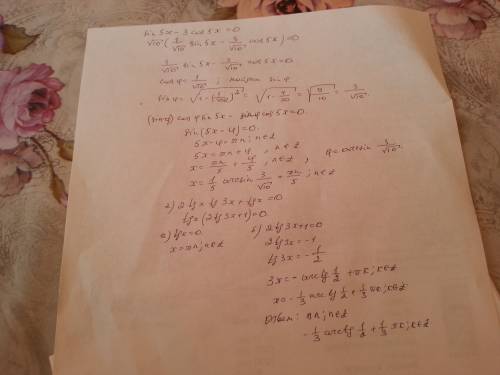 sin 5x - 3 cos 5x = 0
√10 (1/√10 sin 5x - 3/√10 cos 5x) = 0
1/√10 sin 5x - 3/√10 cos 5x = 0
cos φ = 1/√10 ; найдем sin φ
sin φ = √(1 - (1/√10)²) = √(1 - 1/10) = √(9/10) = 3/√10
cos φ sin 5x - sin φ cos 5x = 0
sin (5x - φ) = 0
5x - φ = πn; n∈Z
5x = πn + φ, n∈Z
x = πn/5 + φ/5, n∈Z, φ = arcsin 3/√10
x = 1/5 arcsin 3/√10 + πn/5; n∈Z
2) 2 tg x tg 3x + tg x = 0
tg x (2 tg 3x + 1) = 0
а) tg x = 0 б) 2 tg 3x + 1 = 0
x = πn; n∈Z 2 tg 3x = -1
tg 3x = -1/2
3x = - arctg 1/2 + πk; k∈Z
x = - 1/3 arctg 1/2 + 1/3 πk; k∈Z
Ответ: πn; n∈Z
- 1/3 arctg 1/2 + 1/3 πk; k∈Z